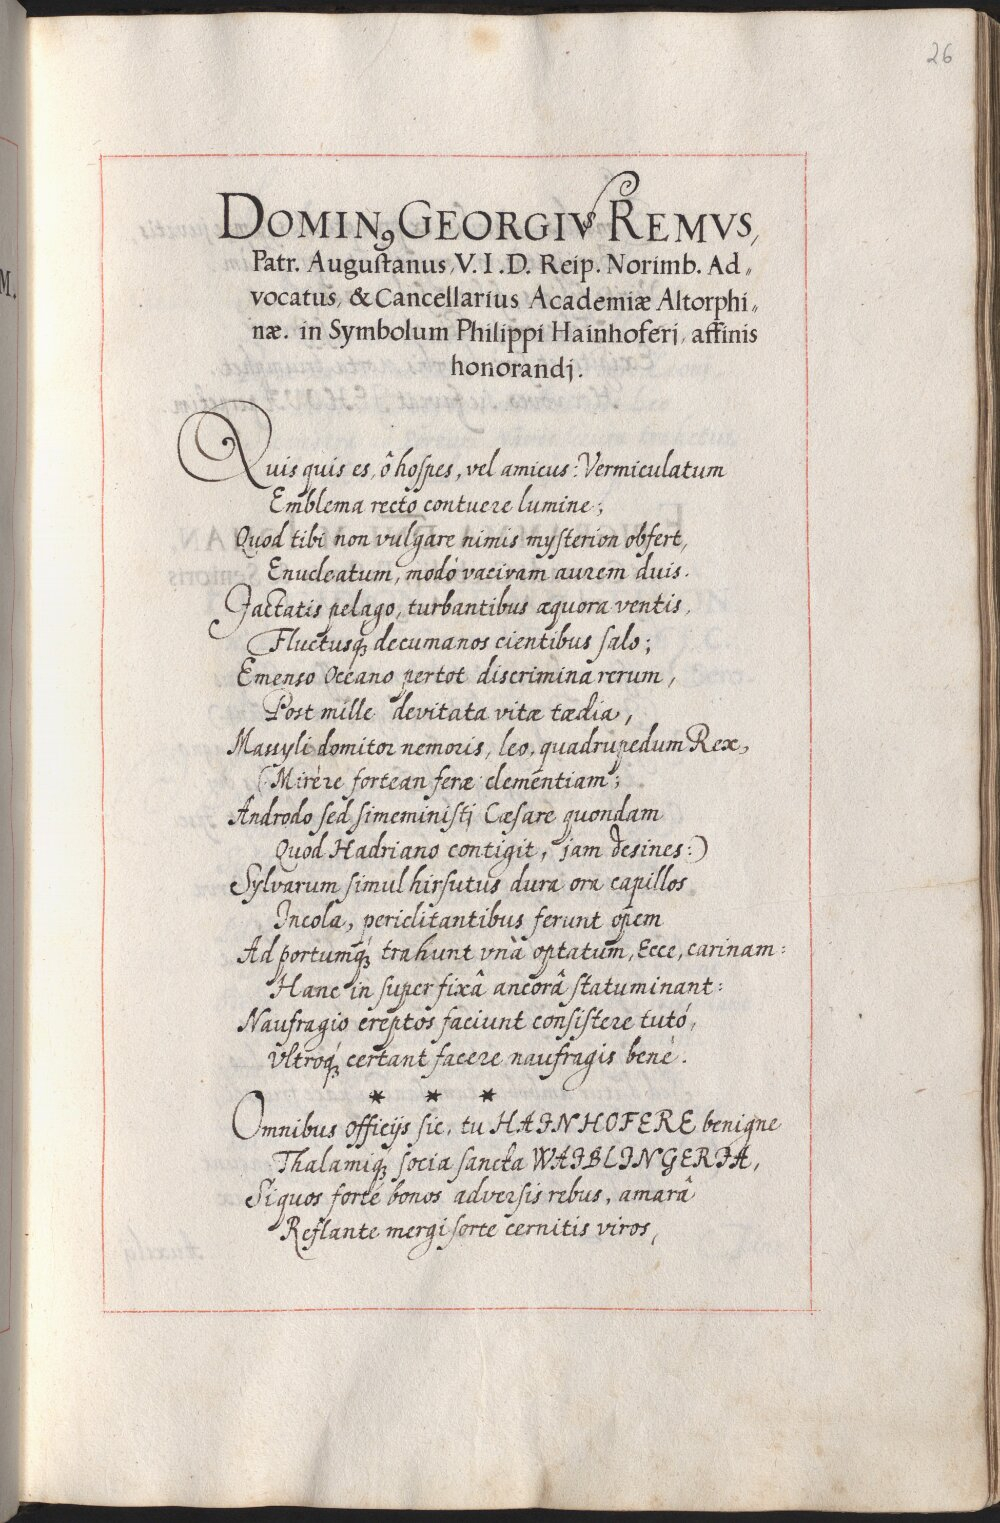 26
DOMINꝰ GEORGIVS REMVS,
Patr. Augustanus, V. I. D. Reip. Norimb. Ad„
vocatus, & Cancellarius Academiæ Altorphi„
næ. in Symbolum Philippi Hainhoferj, affinis
honorandj.
Quis quis es, ô hospes, vel amicus: Vermiculatum
Emblema recto contuere lumine;
Quod tibi non vulgare nimis mysterion obfert,
Enucleatum, modó vacivam aurem duis.
Jactatis pelago, turbantibus æquora ventis,
Fluctusq́; decumanos cientibus salo;
Emenso Oceano per tot discrimina rerum,
Post mille devitata vitæ tædia,
Massyli domitor nemoris, leo, quadrupedum Rex,
(Mirére fortean feræ clementiam;
Androdo sed si meministj Cæsare quondam
Quod Hadriano contigit, jam desines:)
Sylvarum simul hirsutus dura ora capillos
Incola, periclitantibus ferunt opem
Ad portumq́; trahunt vnà optatum, Ecce, carinam:
Hanc in super fixâ ancorâ statuminant:
Naufragio ereptos faciunt consistere tutó,
Vltroq́; certant facere naufragis bené.
* * *
Omnibus officijs sic, tu HAINHOFERE benigne
Thalamiq́; socia sancta WAIBLINGERIA,
Siquos forté bonos adversis rebus, amarâ
Reflante mergi sorte cernitis viros,
M.